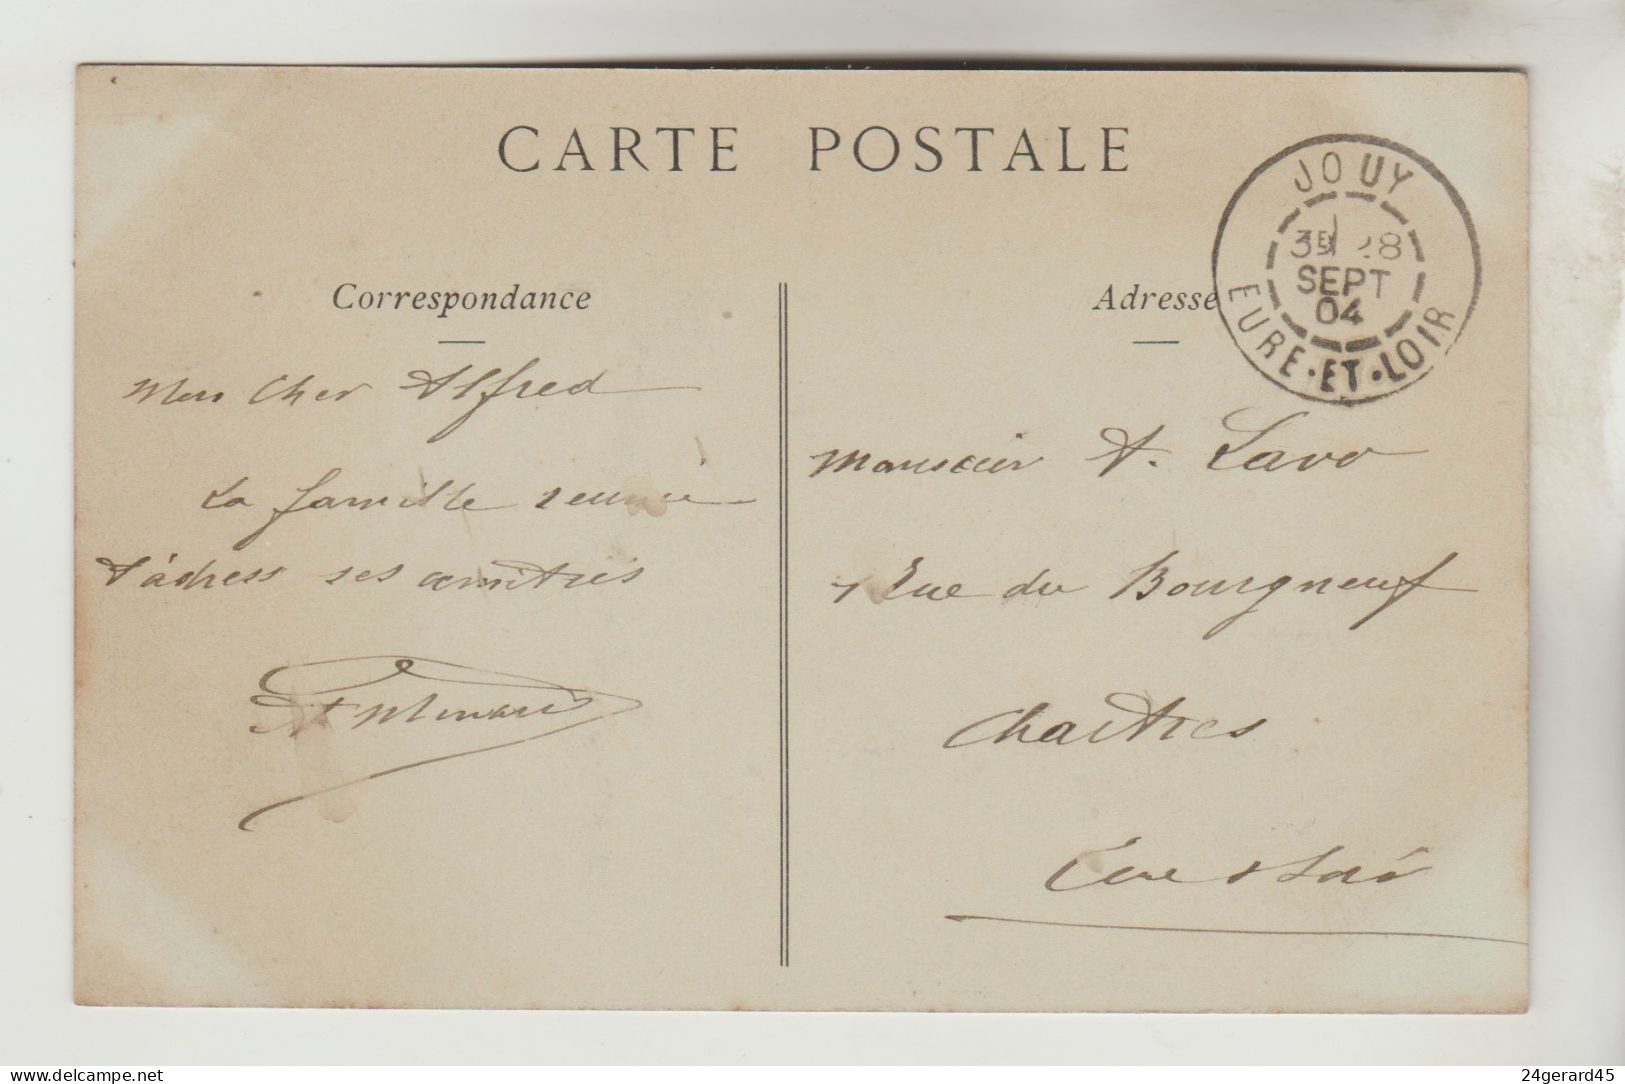 CARTE POSTALE
JOUY
3E 28
SEPT
04
EURE-ET-LOIR
Correspondance
Adresse
Mon Cher Alfred
La famille reunie
t'adress ses amitiés
Monsieur A. Lavo
Rue du Bourgneuf
Chartres
Eure & Loir
delcampe.net
24gerard45